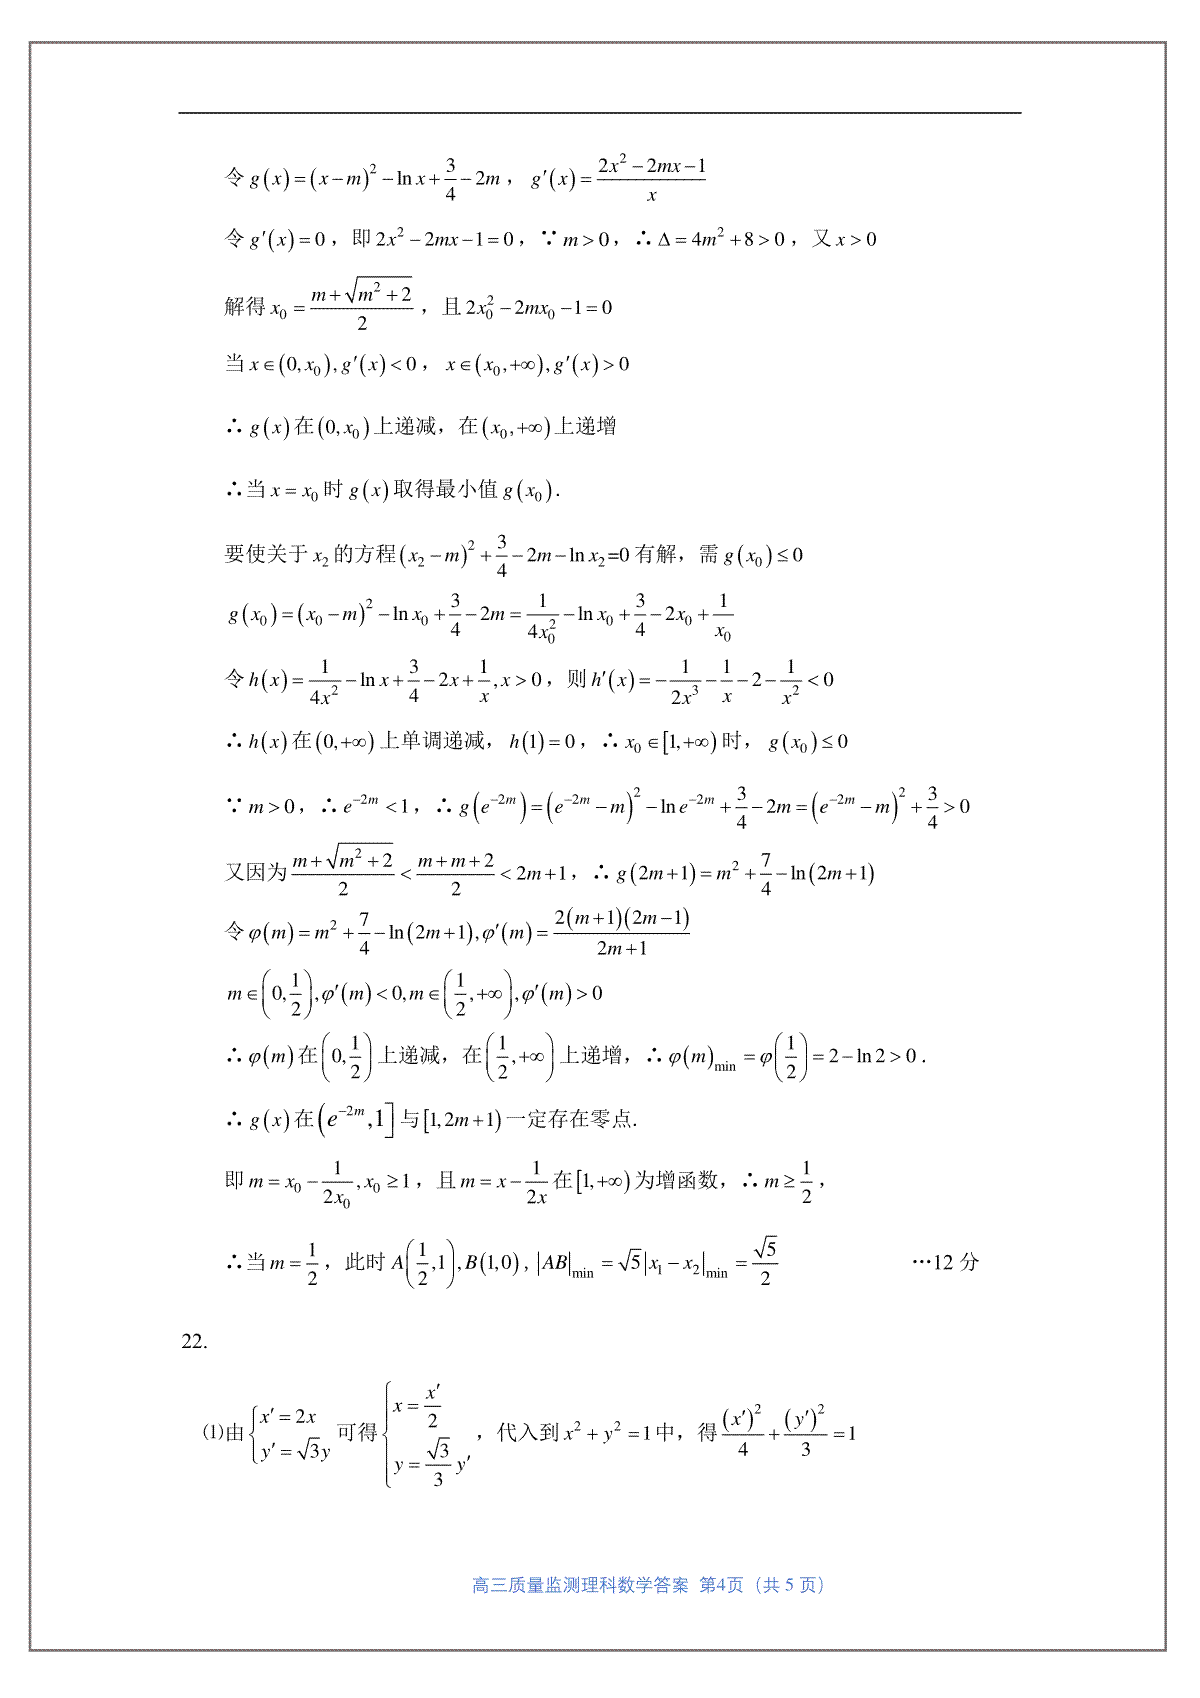 令 g(x)=(x−m)²−ln x+3/4−2m，g′(x)=(2x²−2mx−1)/x
令 g′(x)=0，即 2x²−2mx−1=0，∵ m>0，∴ Δ=4m²+8>0，又 x>0
解得 x₀=(m+√(m²+2))/2，且 2x₀²−2mx₀−1=0
当 x∈(0,x₀),g′(x)<0，x∈(x₀,+∞),g′(x)>0
∴ g(x) 在 (0,x₀) 上递减，在 (x₀,+∞) 上递增
∴当 x=x₀ 时 g(x) 取得最小值 g(x₀).
要使关于 x₂ 的方程 (x₂−m)²+3/4−2m−ln x₂=0 有解，需 g(x₀)≤0
g(x₀)=(x₀−m)²−ln x₀+3/4−2m=1/(4x₀²)−ln x₀+3/4−2x₀+1/x₀
令 h(x)=1/(4x²)−ln x+3/4−2x+1/x,x>0，则 h′(x)=−1/(2x³)−1/x−2−1/x²<0
∴ h(x) 在 (0,+∞) 上单调递减，h(1)=0，∴ x₀∈[1,+∞) 时，g(x₀)≤0
∵ m>0，∴ e⁻²ᵐ<1，∴ g(e⁻²ᵐ)=(e⁻²ᵐ−m)²−ln e⁻²ᵐ+3/4−2m=(e⁻²ᵐ−m)²+3/4>0
又因为 (m+√(m²+2))/2<(m+m+2)/2<2m+1，∴ g(2m+1)=m²+7/4−ln(2m+1)
令 φ(m)=m²+7/4−ln(2m+1),φ′(m)=2(m+1)(2m−1)/(2m+1)
m∈(0,1/2),φ′(m)<0,m∈(1/2,+∞),φ′(m)>0
∴ φ(m) 在 (0,1/2) 上递减，在 (1/2,+∞) 上递增，∴ φ(m)min=φ(1/2)=2−ln 2>0.
∴ g(x) 在 (e⁻²ᵐ,1] 与 [1,2m+1) 一定存在零点.
即 m=x₀−1/(2x₀),x₀≥1，且 m=x−1/(2x) 在 [1,+∞) 为增函数，∴ m≥1/2，
∴当 m=1/2，此时 A(1/2,1),B(1,0), |AB|min=√5|x₁−x₂|min=√5/2 …12 分
22.
⑴由 {x′=2x, y′=√3y 可得 {x=x′/2, y=(√3/3)y′，代入到 x²+y²=1 中，得 (x′)²/4+(y′)²/3=1
高三质量监测理科数学答案 第4页（共 5 页）